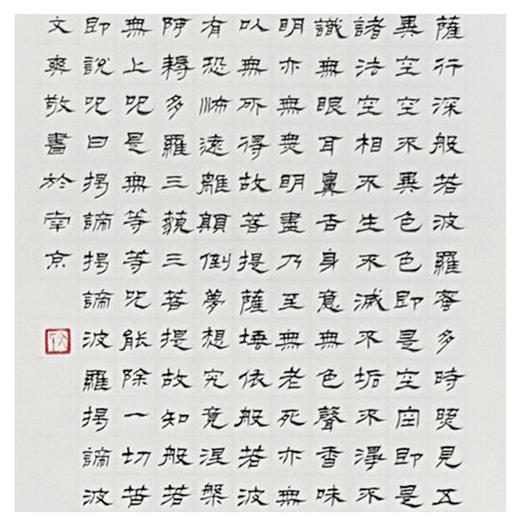 薩行深般若波羅蜜多時照見五
異空空不異色色即是空空即是
諸法空相不生不滅不垢不淨不
識無眼耳鼻舌身意無色聲香味
明亦無無明盡乃至無老死亦無
以無所得故菩提薩埵依般若波
有恐怖遠離顛倒夢想究竟涅槃
阿耨多羅三藐三菩提故知般若
無上咒是無等等咒能除一切苦
即說咒曰揭諦揭諦波羅揭諦波
文爽敬書於南京